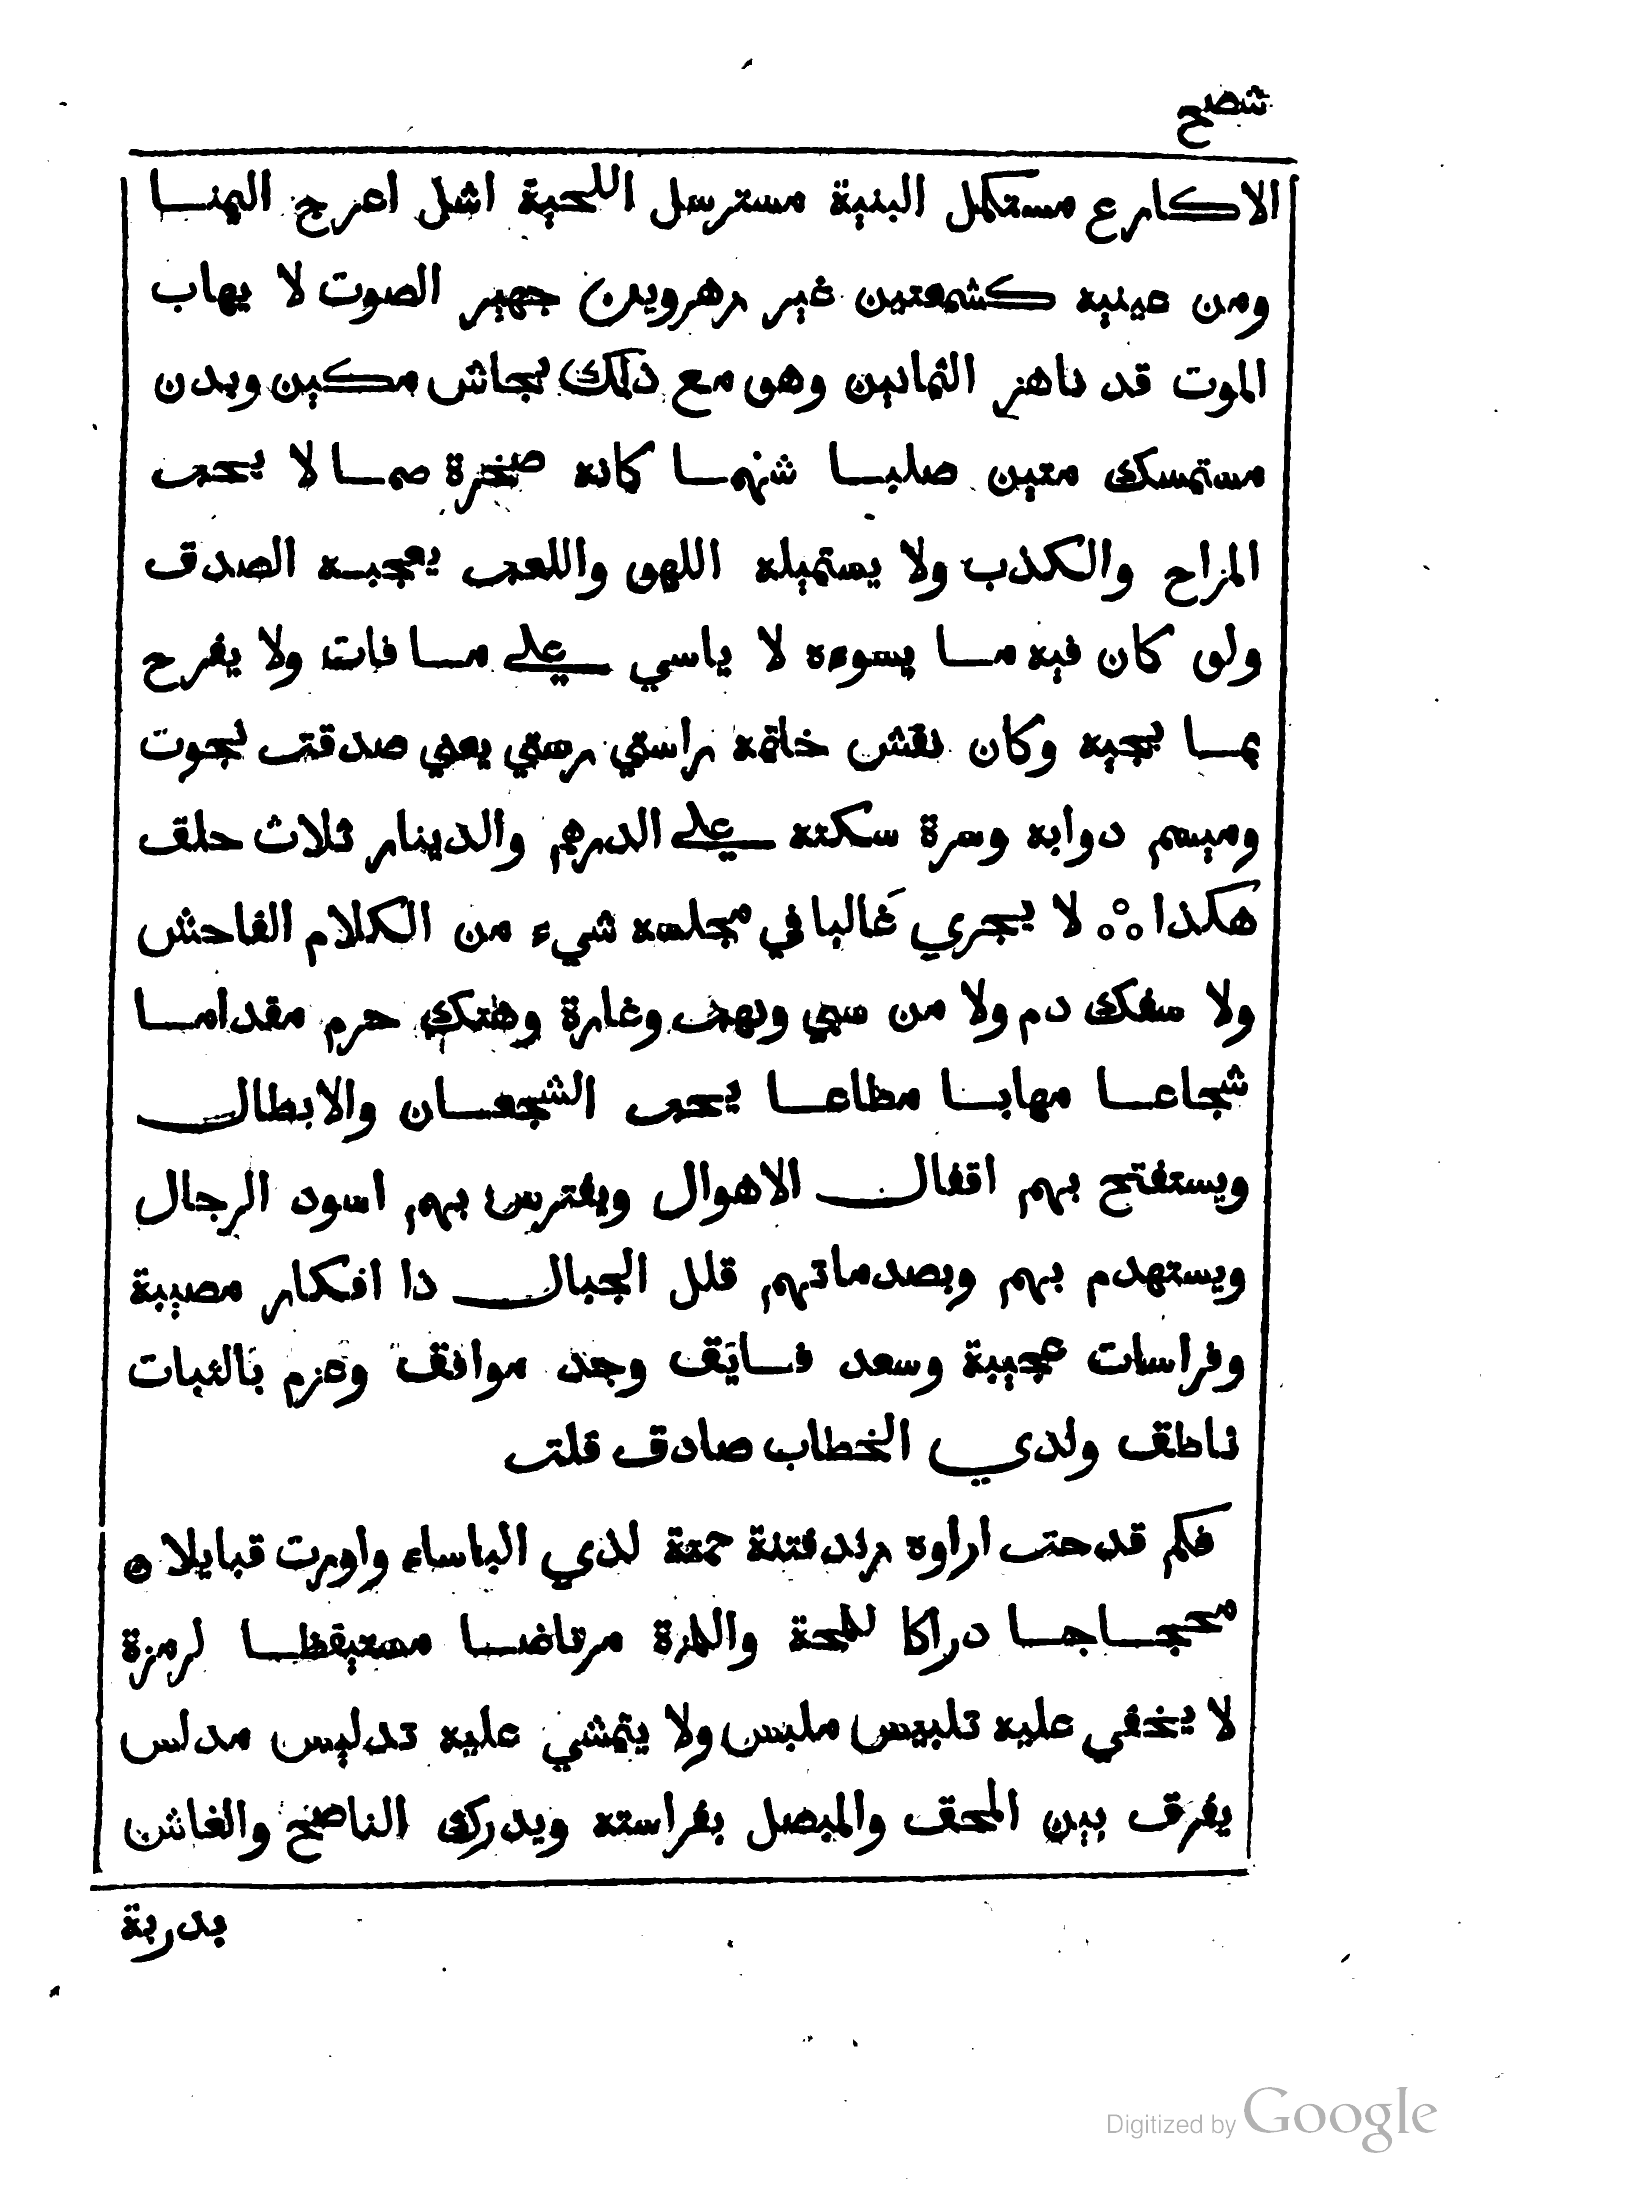 شصح
الاكارع مستكمل البنية مسترسل اللحية اشل اعرج اليمنا
ومن عينيه كشمعتين غير زهرويين جهير الصوت لا يهاب
الموت قد ناهز الثمانين وهو مع ذلك بجاش مكين وبدن
مستمسك متين صلبا شهما كانه صخرة صما لا يحب
المزاح والكذب ولا يستميله اللهو واللعب يعجبه الصدق
ولو كان فيه ما يسوءه لا ياسي علي ما فات ولا يفرح
بما يجيه وكان نقش خاتمه راستي رستي يعني صدقت نجوت
وميسم دوابه وسرة سكته علي الدرهم والدينار ثلاث حلق
هكذا ⁂ لا يجري غالبا في مجلسه شيء من الكلام الفاحش
ولا سفك دم ولا من سبي ونهب وغارة وهتك حرم مقداما
شجاعا مهابا مطاعا يحب الشجعان والابطال
ويستفتح بهم اقفال الاهوال ويفترس بهم اسود الرجال
ويستهدم بهم وبصدماتهم قلل الجبال ذا افكار مصيبة
وفراسات عجيبة وسعد فايق وجد موافق وعزم بالثبات
ناطق ولدي الخطاب صادق قلت
فكم قدحت اراوه زند فتنة حمتة لدي الباساء واورت قبايلا ه
محجاجا دراكا للمحة واللمزة مرتاضا مستيقظا لرمزة
لا يخفي عليه تلبيس ملبس ولا يتمشي عليه تدليس مدلس
يفرق بين المحق والمبصل بفراسته ويدرك الناصح والغاش
بدربة
Digitized by Google